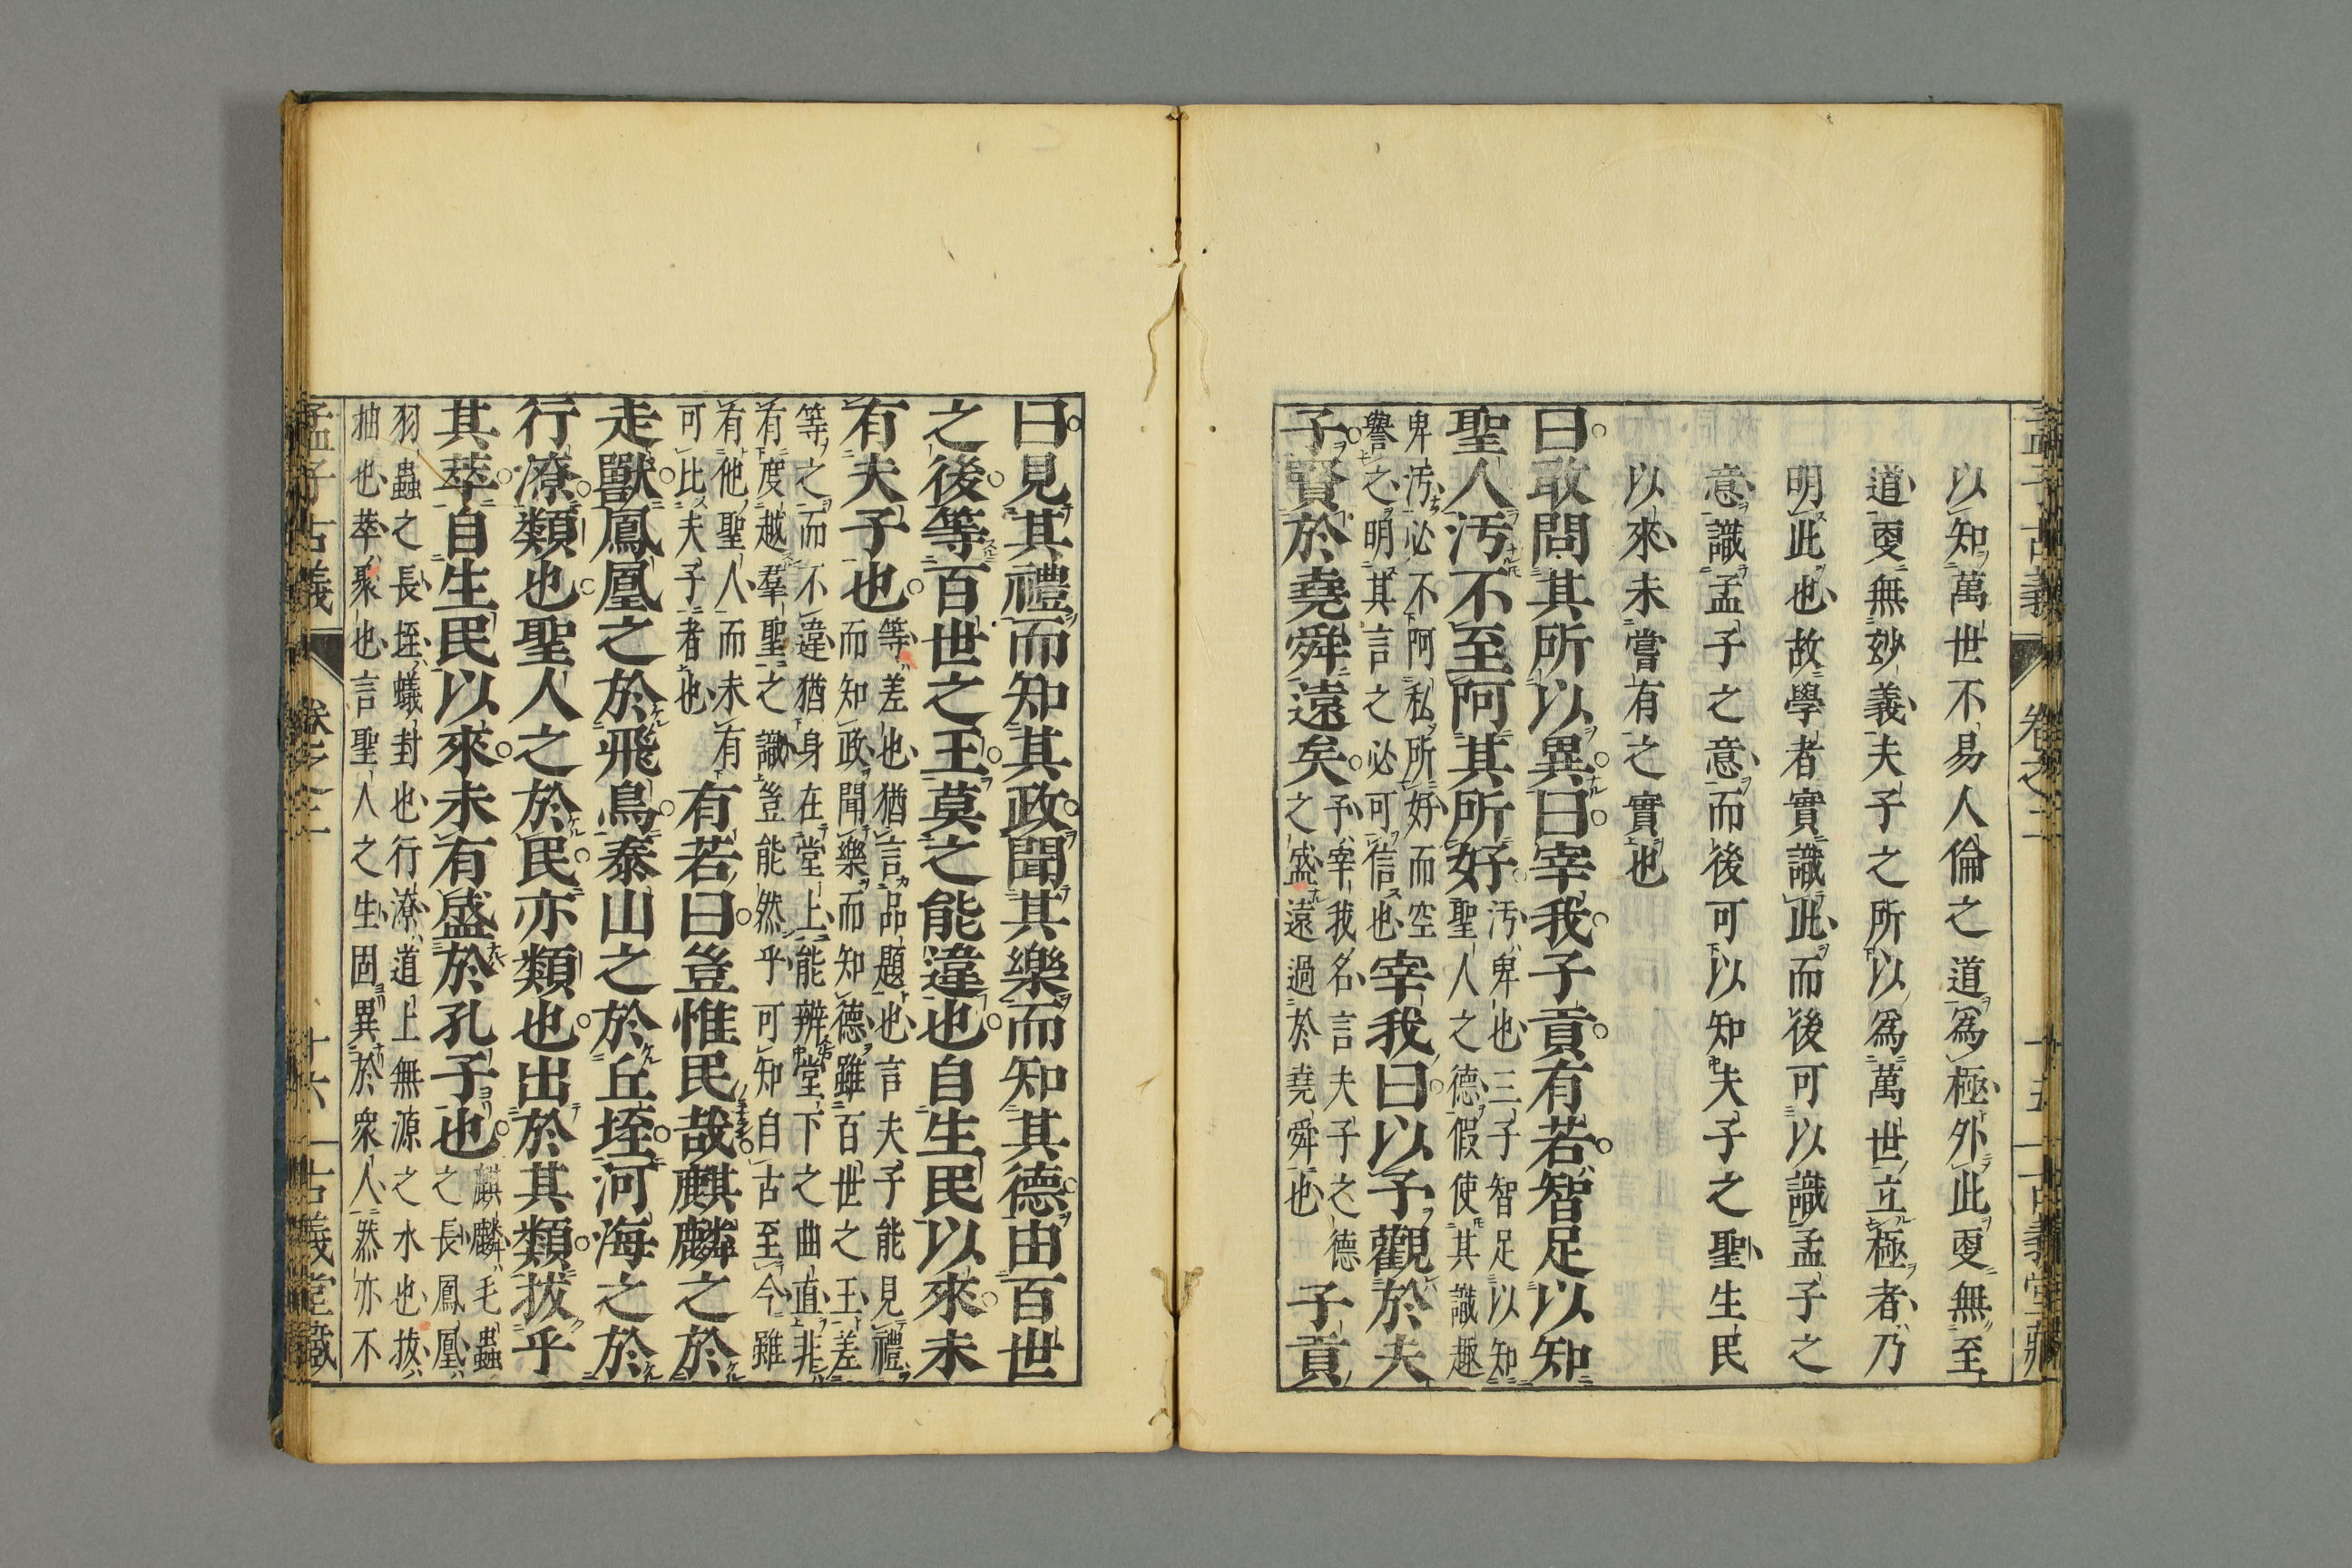 孟子古義 卷之二 十五 古義堂藏
以知萬世不易人倫之道爲極外此更無至
道更無妙義夫子之所以爲萬世立極者乃
明此也故學者實識此而後可以識孟子之
意識孟子之意而後可以知夫子之聖生民
以來未嘗有之實也
曰敢問其所以異曰宰我子貢有若智足以知
聖人汚不至阿其所好
汚卑也三子智足以知
聖人之德假使其識趣
卑汚必不阿私所好而空
譽之明其言之必可信也
宰我曰以予觀於夫
子賢於堯舜遠矣
予宰我名言夫子之德
之盛遠過於堯舜也
子貢
曰見其禮而知其政聞其樂而知其德由百世
之後等百世之王莫之能違也自生民以來未
有夫子也
等差也猶言品題也言夫子能見禮
而知政聞樂而知德雖百世之王差
等之而不違猶身在堂上能辨堂下之曲直非
有度越羣聖之識豈能然乎可知自古至今雖
有他聖人而未有
可比夫子者也
有若曰豈惟民哉麒麟之於
走獸鳳凰之於飛鳥泰山之於丘垤河海之於
行潦類也聖人之於民亦類也出於其類拔乎
其萃自生民以來未有盛於孔子也
麒麟毛蟲
之長鳳凰
羽蟲之長垤蟻封也行潦道上無源之水也拔
抽也萃聚也言聖人之生固異於衆人然亦不
孟子古義 卷之二 十六 古義堂藏